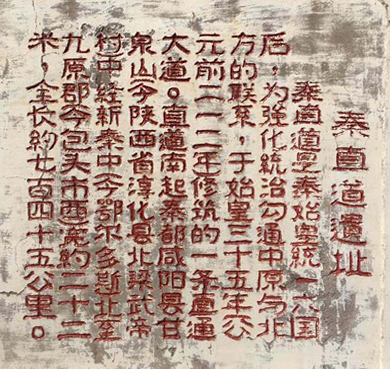 秦直道遺址
秦直道是秦始皇統一六国
后，为强化統治勾通中原与北
方的联系，于始皇三十五年公
元前二一二年修筑的一条直通
大道。直道南起秦都咸阳县甘
泉山今陕西省淳化县北梁武帝
村中经新秦中今鄂尔多斯北至
九原郡今包头市西宽約二十二
米，全长約七百四十五公里。